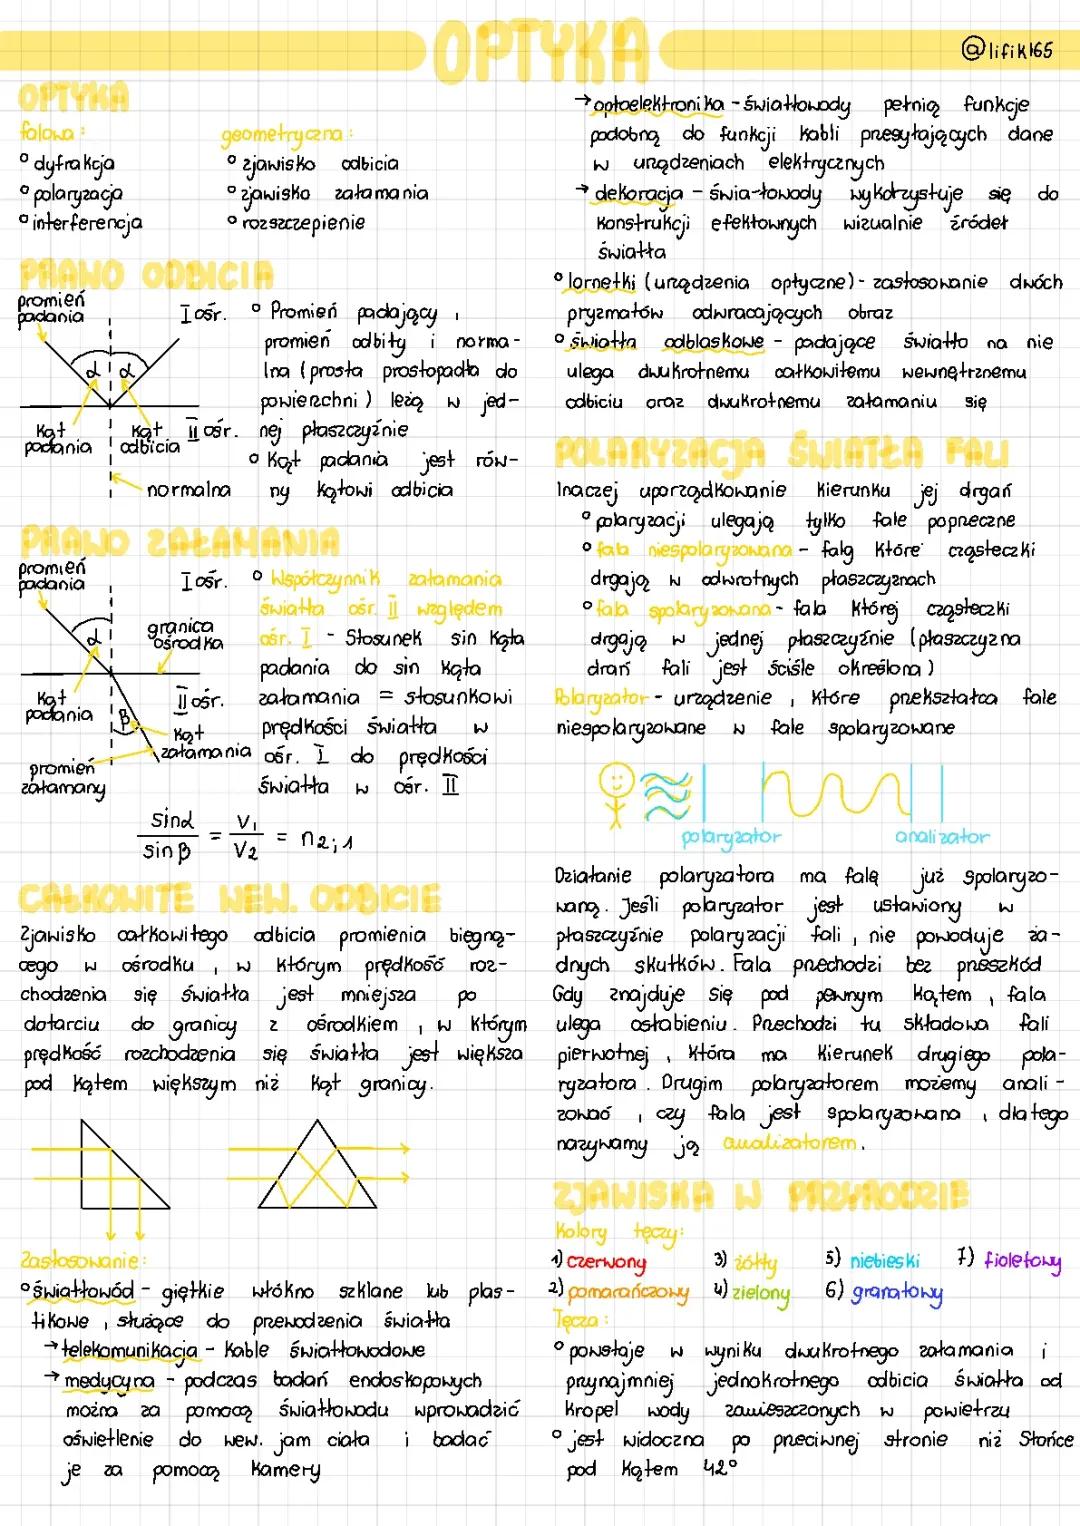 OPTYKA
@lifik165
OPTYKA
falowa:
° dyfrakcja
° polaryzacja
° interferencja
geometryczna:
° zjawisko odbicia
° zjawisko załamania
° rozszczepienie
PRAWO ODBICIA
promień
padania
I ośr.
α α
Kąt
padania
Kąt
odbicia
II ośr.
normalna
° Promień padający,
promień odbity i norma-
lna (prosta prostopadła do
powierzchni) leżą w jed-
nej płaszczyźnie
° Kąt padania jest rów-
ny kątowi odbicia
PRAWO ZAŁAMANIA
promień
padania
I ośr.
α
granica
ośrodka
Kąt
padania
II ośr.
β
Kąt
załamania
promień
załamany
° Współczynnik załamania
światła ośr. II względem
ośr. I - Stosunek sin kąta
padania do sin kąta
załamania = stosunkowi
prędkości światła w
ośr. I do prędkości
światła w ośr. II
sinα/sinβ = V₁/V₂ = n₂;₁
CAŁKOWITE WEW. ODBICIE
Zjawisko całkowitego odbicia promienia biegną-
cego w ośrodku, w którym prędkość roz-
chodzenia się światła jest mniejsza po
dotarciu do granicy z ośrodkiem, w którym
prędkość rozchodzenia się światła jest większa
pod kątem większym niż kąt graniczny.
Zastosowanie:
° światłowód - giętkie włókno szklane lub plas-
tikowe, służące do przewodzenia światła
→ telekomunikacja - Kable światłowodowe
→ medycyna - podczas badań endoskopowych
można za pomocą światłowodu wprowadzić
oświetlenie do wew. jam ciała i badać
je za pomocą kamery
→ optoelektronika - światłowody pełnią funkcje
podobną do funkcji kabli przesyłających dane
w urządzeniach elektrycznych
→ dekoracja - świa-łowody wykorzystuje się do
konstrukcji efektownych wizualnie źródeł
światła
° lornetki (urządzenia optyczne) - zastosowanie dwóch
pryzmatów odwracających obraz
° światła odblaskowe - padające światło na nie
ulega dwukrotnemu całkowitemu wewnętrznemu
odbiciu oraz dwukrotnemu załamaniu się
POLARYZACJA ŚWIATŁA FALI
Inaczej uporządkowanie kierunku jej drgań
° polaryzacji ulegają tylko fale poprzeczne
° fala niespolaryzowana - falą które cząsteczki
drgają w odwrotnych płaszczyznach
° fala spolaryzowana - fala której cząsteczki
drgają w jednej płaszczyźnie (płaszczyzna
drań fali jest ściśle określona)
Polaryzator - urządzenie, które przekształca fale
niespolaryzowane w fale spolaryzowane
polaryzator
analizator
Działanie polaryzatora ma falę już spolaryzo-
waną. Jeśli polaryzator jest ustawiony w
płaszczyźnie polaryzacji fali, nie powoduje ża-
dnych skutków. Fala przechodzi bez przeszkód
Gdy znajduje się pod pewnym kątem, fala
ulega osłabieniu. Przechodzi tu składowa fali
pierwotnej, która ma kierunek drugiego pola-
ryzatora. Drugim polaryzatorem możemy anali-
zować, czy fala jest spolaryzowana, dlatego
nazywamy ją analizatorem.
ZJAWISKA W PRZYRODZIE
Kolory tęczy:
1) czerwony 3) żółty 5) niebieski 7) fioletowy
2) pomarańczowy 4) zielony 6) granatowy
Tęcza:
° powstaje w wyniku dwukrotnego załamania i
przynajmniej jednokrotnego odbicia światła od
kropel wody zawieszczonych w powietrzu
° jest widoczna po przeciwnej stronie niż Słońce
pod kątem 42°